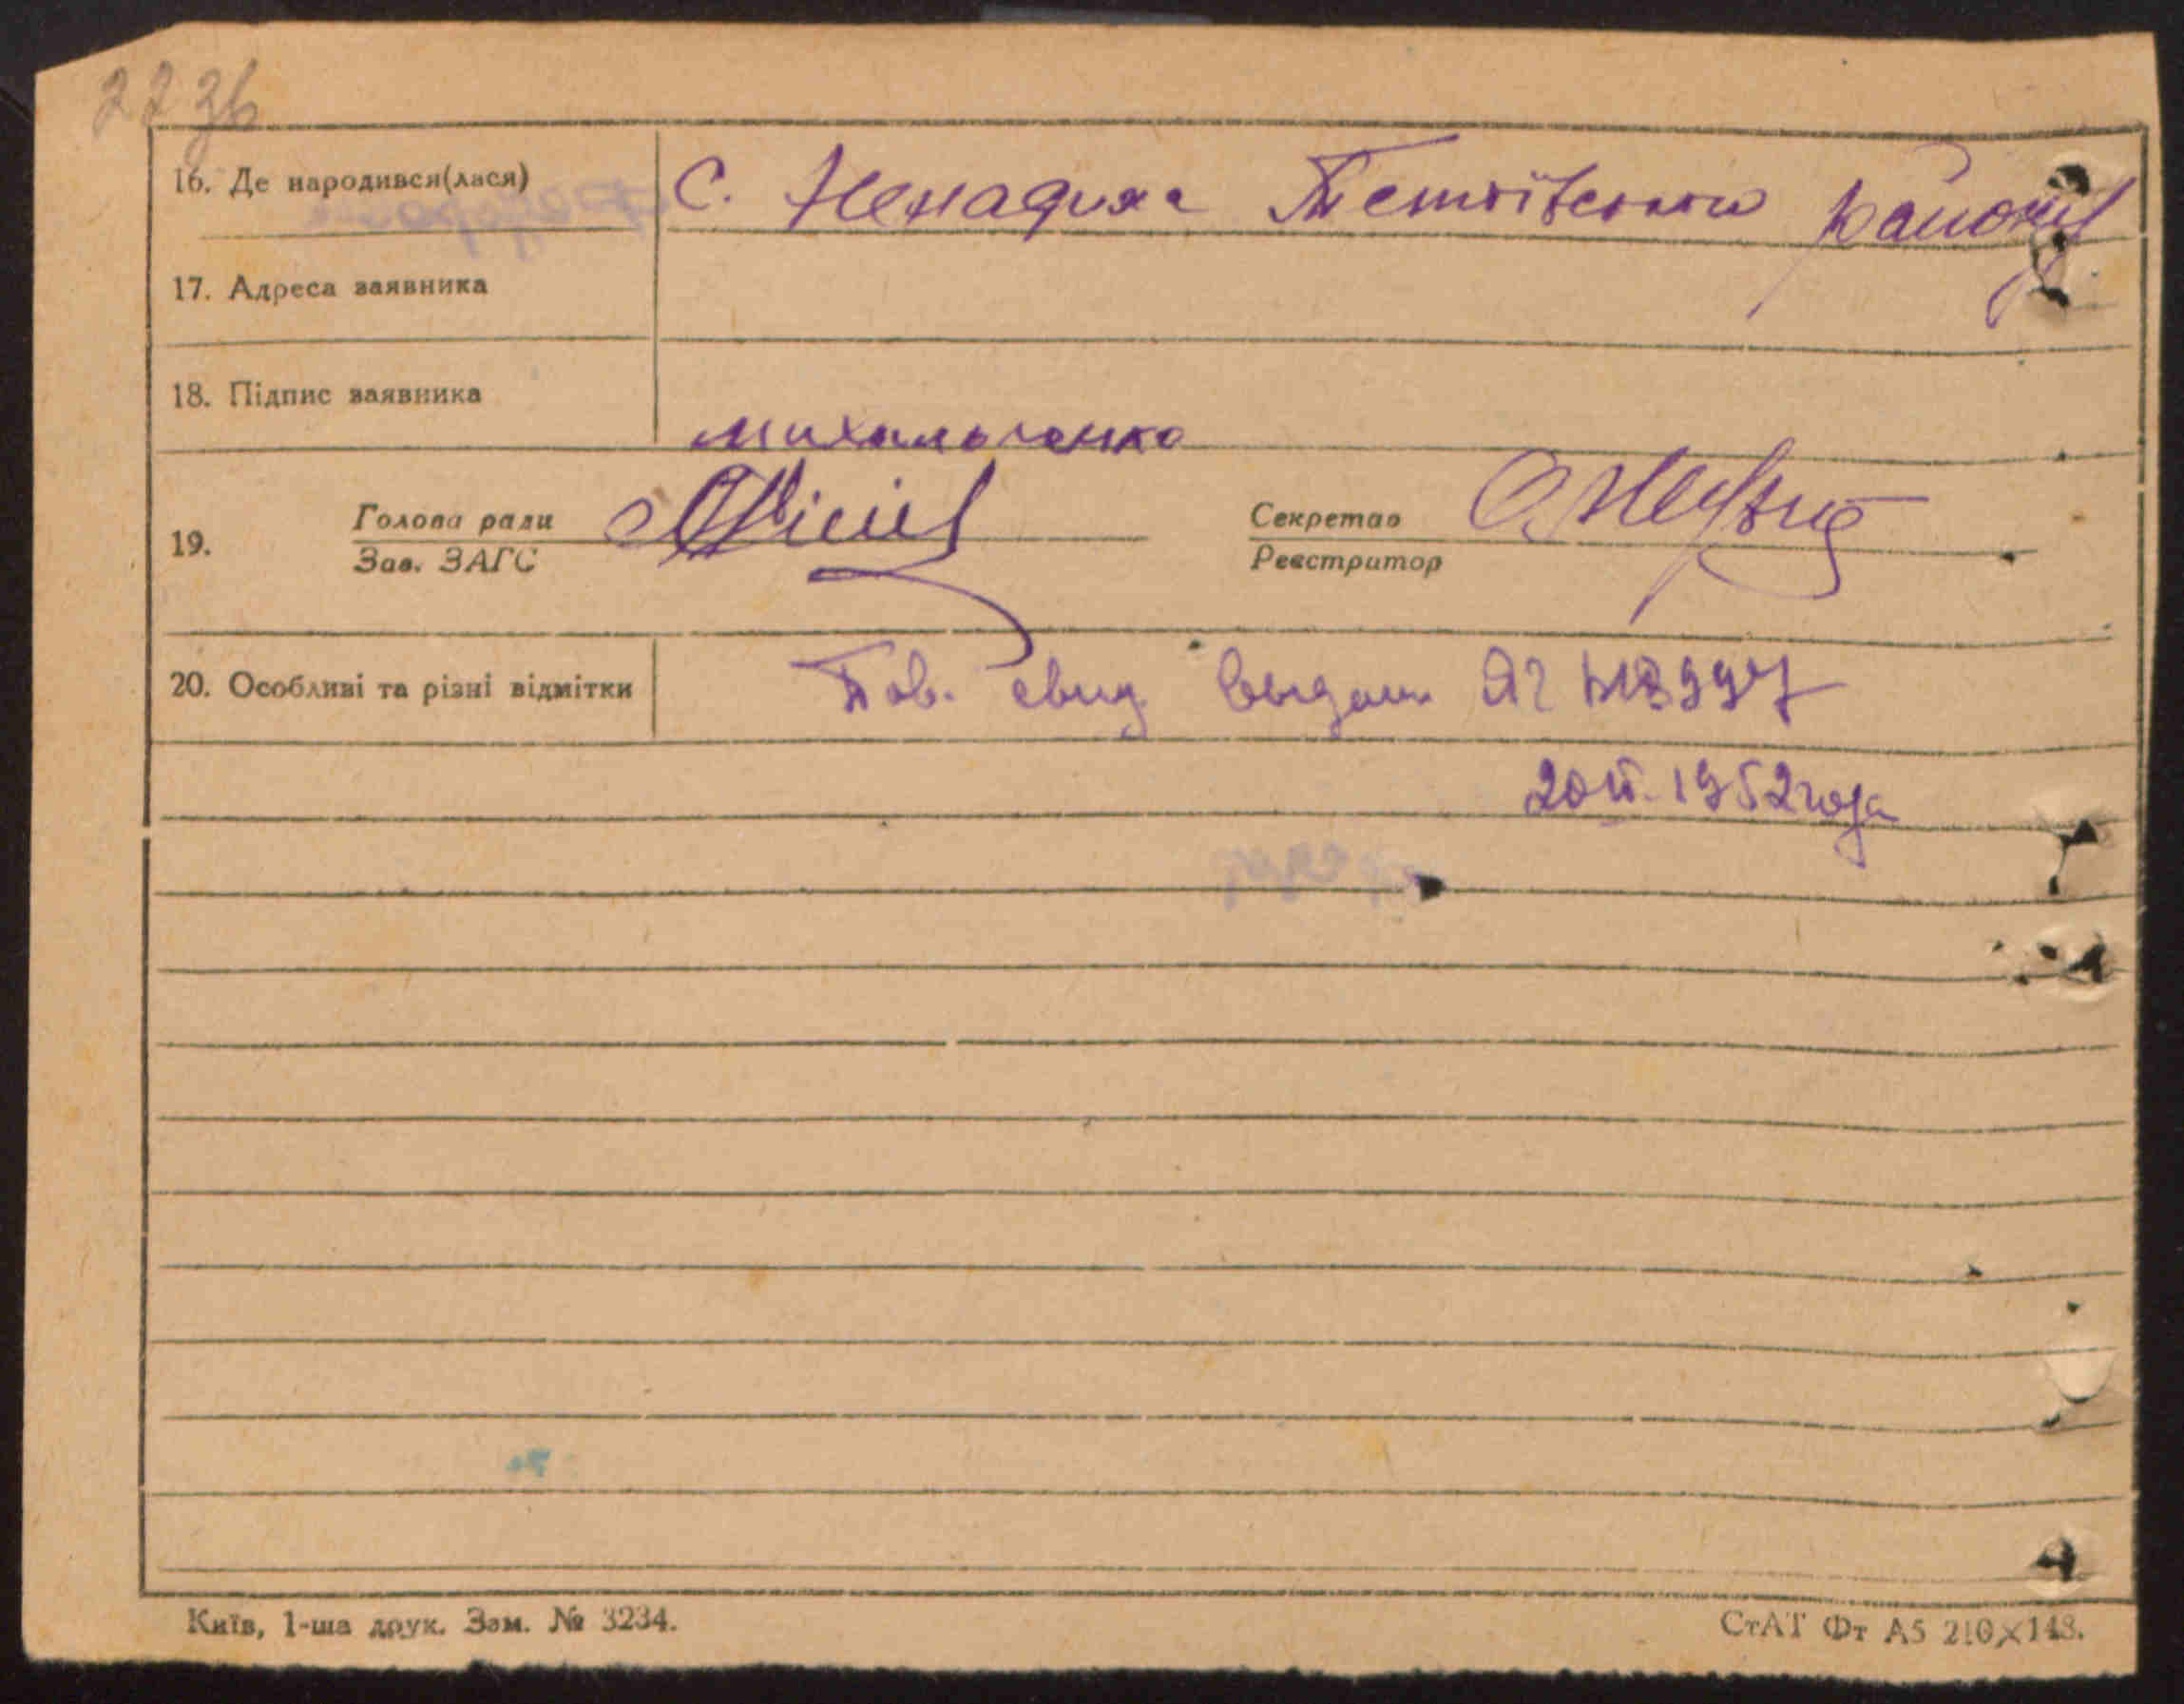 2236
16. Де народився(лася) С. Ненадиха Тетіївського району
17. Адреса заявника
18. Підпис заявника Михальченко
19. Голова ради Секретар
Зав. ЗАГС Реєстратор
20. Особливі та різні відмітки Пов. свид. выдан ЯГ
20 1952 года
Київ, 1-ша друк. Зам. № 3234.
СтАТ Фт А5 210×148.